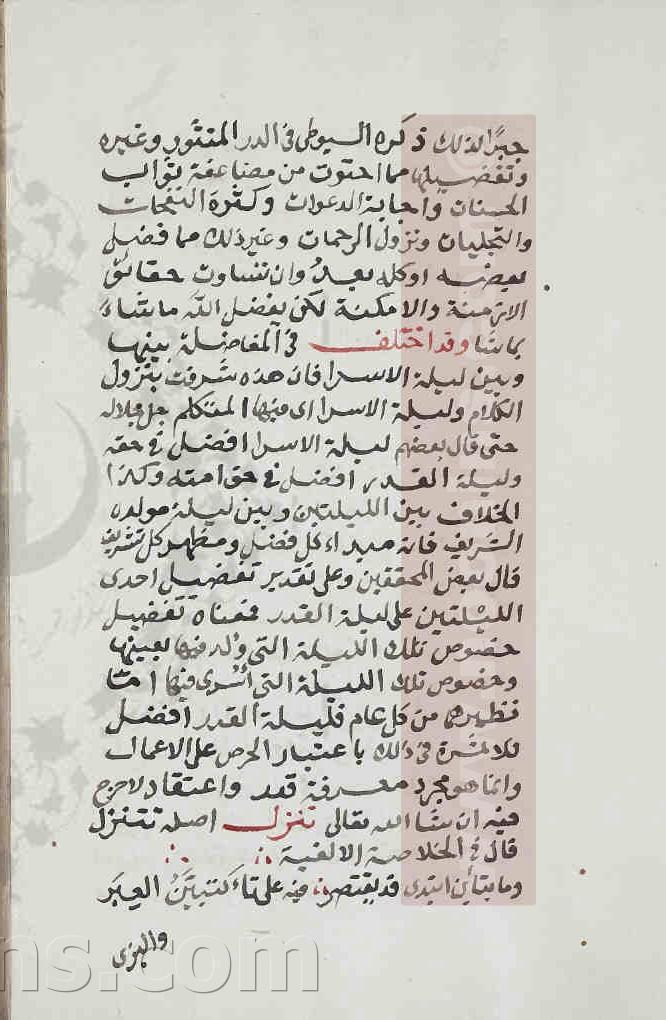 جبرا لذلك ذكره السيوطى فى الدر المنثور وغيره
وتفضيلها مما احتوت من مضاعفة ثواب
الحسنات واجابة الدعوات وكثرة النفحات
والتجليات ونزول الرحمات وغير ذلك مما فضل
بعضه او كله يعد وان تساوت حقائق
الازمنة والامكنة لكن يفضل الله ما شاء
بما شا وقد اختلف فى المفاضلة بينها
وبين ليلة الاسرا فان هذه شرفت بنزول
الكلام وليلة الاسرا اى فيها المتكلم جل جلاله
حتى قال بعضهم ليلة الاسرا افضل فى حقه
وليلة القدر افضل فى حق امته وكذا
الخلاف بين الليلتين وبين ليلة مولده
الشريف فانه مبداء كل فضل ومظهر كل تشريف
قال بعض المحققين وعلى تقدير تفضيل احدى
الليلتين على ليلة القدر فمعناه تفضيل
خصوص تلك الليلة التى ولد فيها بعينها
وخصوص تلك الليلة التى أسرى فيها اما
نظيرهما من كل عام فليلة القدر افضل
للامة فى ذلك باعتبار الحرص على الاعمال
وانما هو مجرد معرفة قدر واعتقاد لا حرج
فيه ان شا الله تعالى تنزل اصله تتنزل
قال فى الخلاصة الالفية
وما بتاءين ابتدى قد يقتصر فيه على تاء كتبين العبر
ns.com